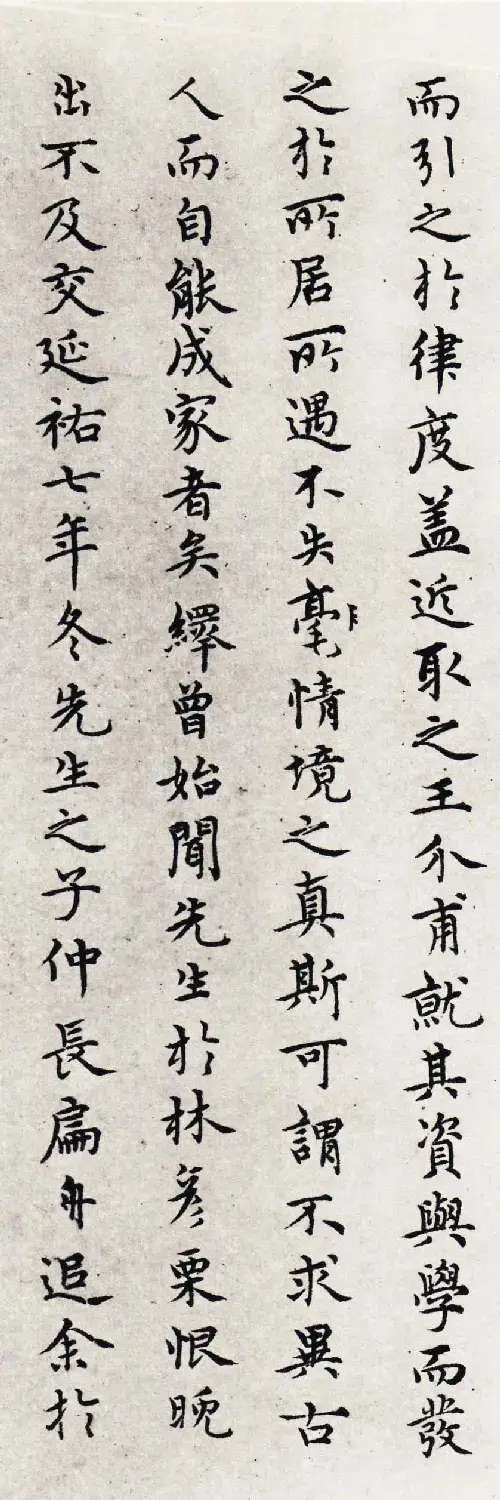 而引之於律度蓋近取之王介甫就其資與學而發
之於所居所遇不失毫情境之真斯可謂不求異古
人而自能成家者矣繹曾始聞先生於林彦栗恨晚
出不及交延祐七年冬先生之子仲長扁舟追余於